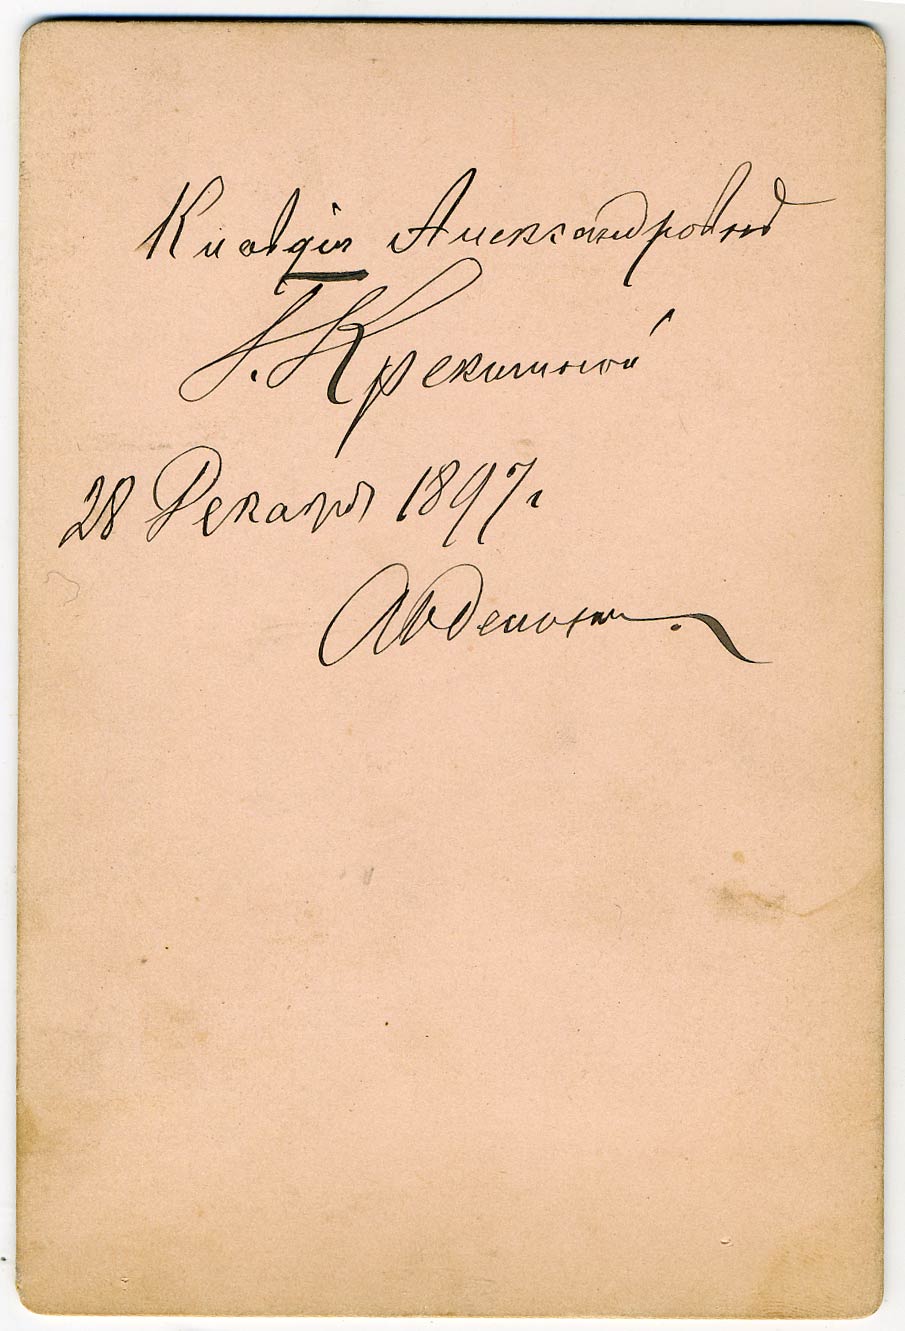 Клавдіи Александровнѣ
Г. Крекшиной
28 Декабря 1897 г